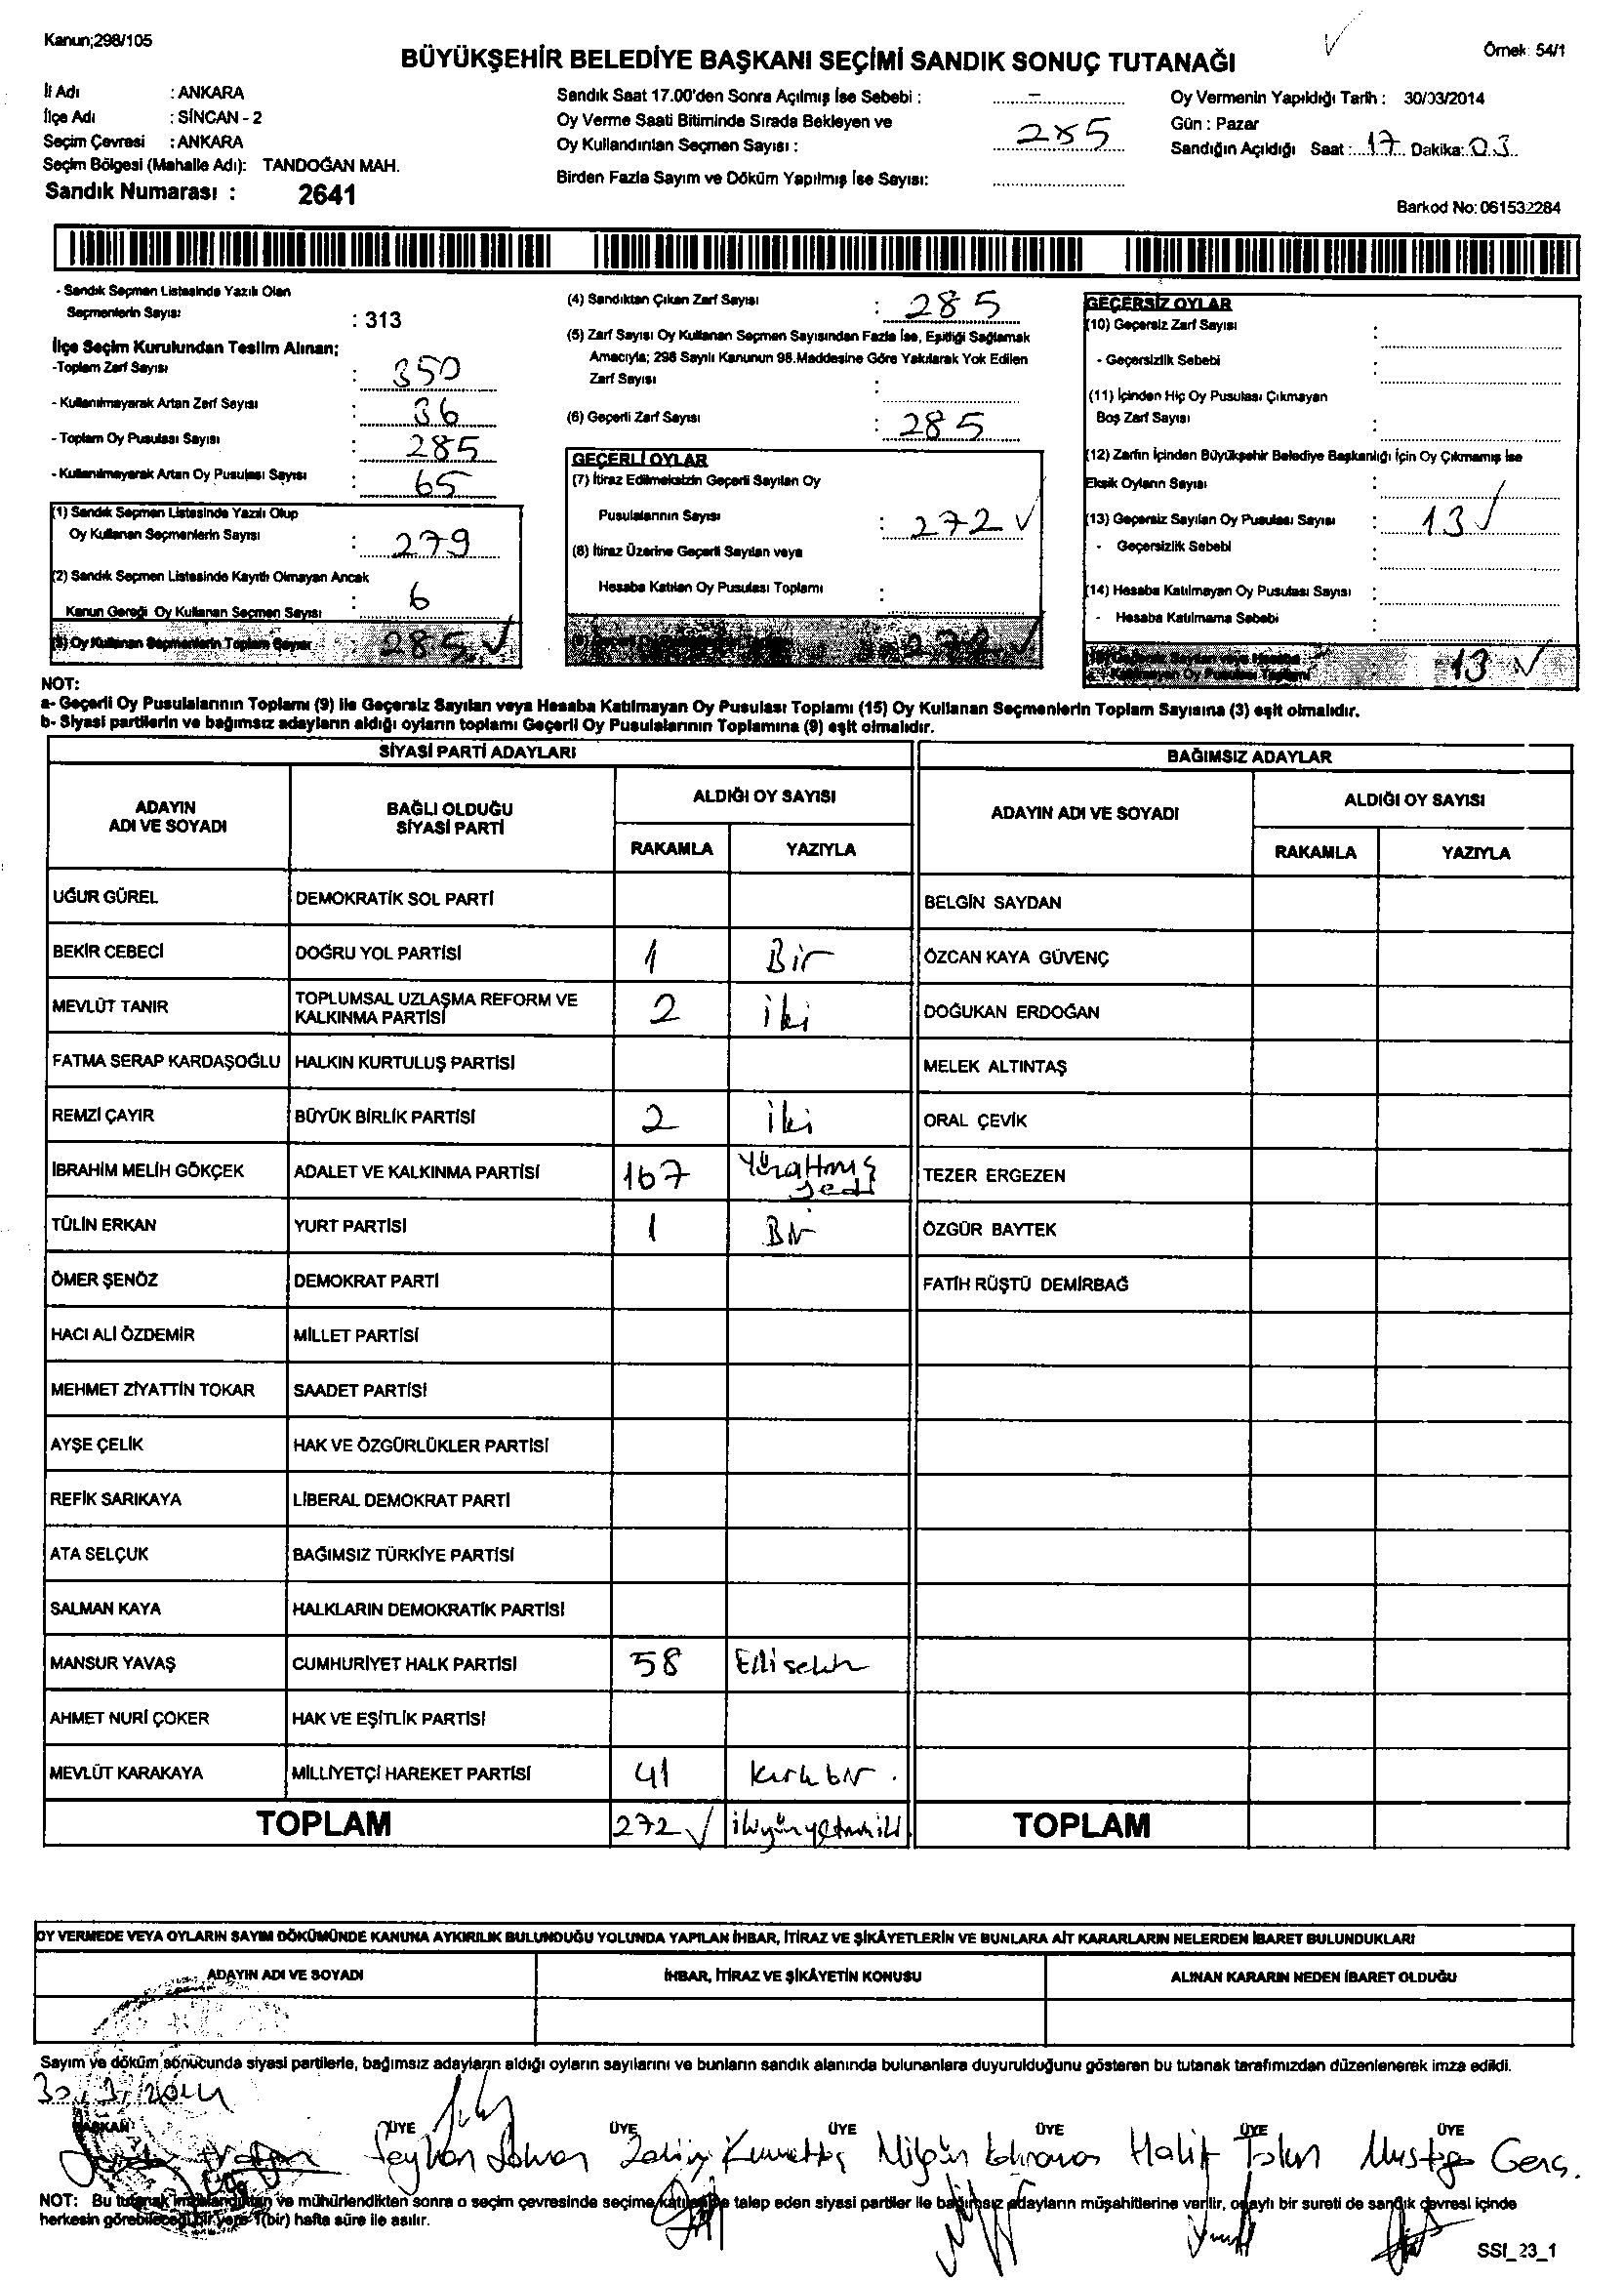 Kanun;298/105
Örnek: 54/1
BÜYÜKŞEHİR BELEDİYE BAŞKANI SEÇİMİ SANDIK SONUÇ TUTANAĞI
İl Adı : ANKARA
İlçe Adı : SİNCAN - 2
Seçim Çevresi : ANKARA
Seçim Bölgesi (Mahalle Adı): TANDOĞAN MAH.
Sandık Numarası : 2641
Sandık Saat 17.00'den Sonra Açılmış İse Sebebi : -
Oy Verme Saati Bitiminde Sırada Bekleyen ve
Oy Kullandırılan Seçmen Sayısı : 285
Birden Fazla Sayım ve Döküm Yapılmış İse Sayısı:
Oy Vermenin Yapıldığı Tarih : 30/03/2014
Gün : Pazar
Sandığın Açıldığı Saat : 17 Dakika: 03
Barkod No: 061532284
- Sandık Seçmen Listesinde Yazılı Olan
Seçmenlerin Sayısı : 313
İlçe Seçim Kurulundan Teslim Alınan;
-Toplam Zarf Sayısı : 350
- Kullanılmayarak Artan Zarf Sayısı : 36
- Toplam Oy Pusulası Sayısı : 285
- Kullanılmayarak Artan Oy Pusulası Sayısı : 65
(1) Sandık Seçmen Listesinde Yazılı Olup
Oy Kullanan Seçmenlerin Sayısı : 279
(2) Sandık Seçmen Listesinde Kayıtlı Olmayan Ancak
Kanun Gereği Oy Kullanan Seçmen Sayısı : 6
(3) Oy Kullanan Seçmenlerin Toplam Sayısı 285
(4) Sandıktan Çıkan Zarf Sayısı : 285
(5) Zarf Sayısı Oy Kullanan Seçmen Sayısından Fazla İse, Eşitliği Sağlamak
Amacıyla; 298 Sayılı Kanunun 98.Maddesine Göre Yakılarak Yok Edilen
Zarf Sayısı :
(6) Geçerli Zarf Sayısı : 285
GEÇERLİ OYLAR
(7) İtiraz Edilmeksizin Geçerli Sayılan Oy
Pusulalarının Sayısı : 272
(8) İtiraz Üzerine Geçerli Sayılan veya
Hesaba Katılan Oy Pusulası Toplamı :
272
GEÇERSİZ OYLAR
(10) Geçersiz Zarf Sayısı :
- Geçersizlik Sebebi :
(11) İçinden Hiç Oy Pusulası Çıkmayan
Boş Zarf Sayısı :
(12) Zarfın İçinden Büyükşehir Belediye Başkanlığı İçin Oy Çıkmamış İse
Eksik Oyların Sayısı :
(13) Geçersiz Sayılan Oy Pusulası Sayısı : 13
- Geçersizlik Sebebi :
(14) Hesaba Katılmayan Oy Pusulası Sayısı :
- Hesaba Katılmama Sebebi :
13
NOT:
a- Geçerli Oy Pusulalarının Toplamı (9) ile Geçersiz Sayılan veya Hesaba Katılmayan Oy Pusulası Toplamı (15) Oy Kullanan Seçmenlerin Toplam Sayısına (3) eşit olmalıdır.
b- Siyasi partilerin ve bağımsız adayların aldığı oyların toplamı Geçerli Oy Pusulalarının Toplamına (9) eşit olmalıdır.
SİYASİ PARTİ ADAYLARI
ADAYIN ADI VE SOYADI
BAĞLI OLDUĞU SİYASİ PARTİ
ALDIĞI OY SAYISI
RAKAMLA YAZIYLA
UĞUR GÜREL DEMOKRATİK SOL PARTİ
BEKİR CEBECİ DOĞRU YOL PARTİSİ 1 Bir
MEVLÜT TANIR TOPLUMSAL UZLAŞMA REFORM VE KALKINMA PARTİSİ 2 iki
FATMA SERAP KARDAŞOĞLU HALKIN KURTULUŞ PARTİSİ
REMZİ ÇAYIR BÜYÜK BİRLİK PARTİSİ 2 iki
İBRAHİM MELİH GÖKÇEK ADALET VE KALKINMA PARTİSİ 167 Yüzaltmış yedi
TÜLİN ERKAN YURT PARTİSİ 1 Bir
ÖMER ŞENÖZ DEMOKRAT PARTİ
HACI ALİ ÖZDEMİR MİLLET PARTİSİ
MEHMET ZİYATTİN TOKAR SAADET PARTİSİ
AYŞE ÇELİK HAK VE ÖZGÜRLÜKLER PARTİSİ
REFİK SARIKAYA LİBERAL DEMOKRAT PARTİ
ATA SELÇUK BAĞIMSIZ TÜRKİYE PARTİSİ
SALMAN KAYA HALKLARIN DEMOKRATİK PARTİSİ
MANSUR YAVAŞ CUMHURİYET HALK PARTİSİ 58 Ellisekiz
AHMET NURİ ÇOKER HAK VE EŞİTLİK PARTİSİ
MEVLÜT KARAKAYA MİLLİYETÇİ HAREKET PARTİSİ 41 Kırkbir
TOPLAM 272 ikiyüzyetmişiki
BAĞIMSIZ ADAYLAR
ADAYIN ADI VE SOYADI
ALDIĞI OY SAYISI
RAKAMLA YAZIYLA
BELGİN SAYDAN
ÖZCAN KAYA GÜVENÇ
DOĞUKAN ERDOĞAN
MELEK ALTINTAŞ
ORAL ÇEVİK
TEZER ERGEZEN
ÖZGÜR BAYTEK
FATİH RÜŞTÜ DEMİRBAĞ
TOPLAM
OY VERMEDE VEYA OYLARIN SAYIM DÖKÜMÜNDE KANUNA AYKIRILIK BULUNDUĞU YOLUNDA YAPILAN İHBAR, İTİRAZ VE ŞİKÂYETLERİN VE BUNLARA AİT KARARLARIN NELERDEN İBARET BULUNDUKLARI
ADAYIN ADI VE SOYADI
İHBAR, İTİRAZ VE ŞİKÂYETİN KONUSU
ALINAN KARARIN NEDEN İBARET OLDUĞU
Sayım ve döküm sonucunda siyasi partilerle, bağımsız adayların aldığı oyların sayılarını ve bunların sandık alanında bulunanlara duyurulduğunu gösteren bu tutanak tarafımızdan düzenlenerek imza edildi.
30.3.2014
BAŞKAN ÜYE ÜYE ÜYE ÜYE ÜYE ÜYE
Seyhan Nilgün Halit Mustafa Genç.
NOT: Bu tutanak imzalandıktan ve mühürlendikten sonra o seçim çevresinde seçime katılan ve talep eden siyasi partiler ile bağımsız adayların müşahitlerine verilir, onaylı bir sureti de sandık çevresi içinde
herkesin görebileceği bir yere 1(bir) hafta süre ile asılır.
SSI_23_1